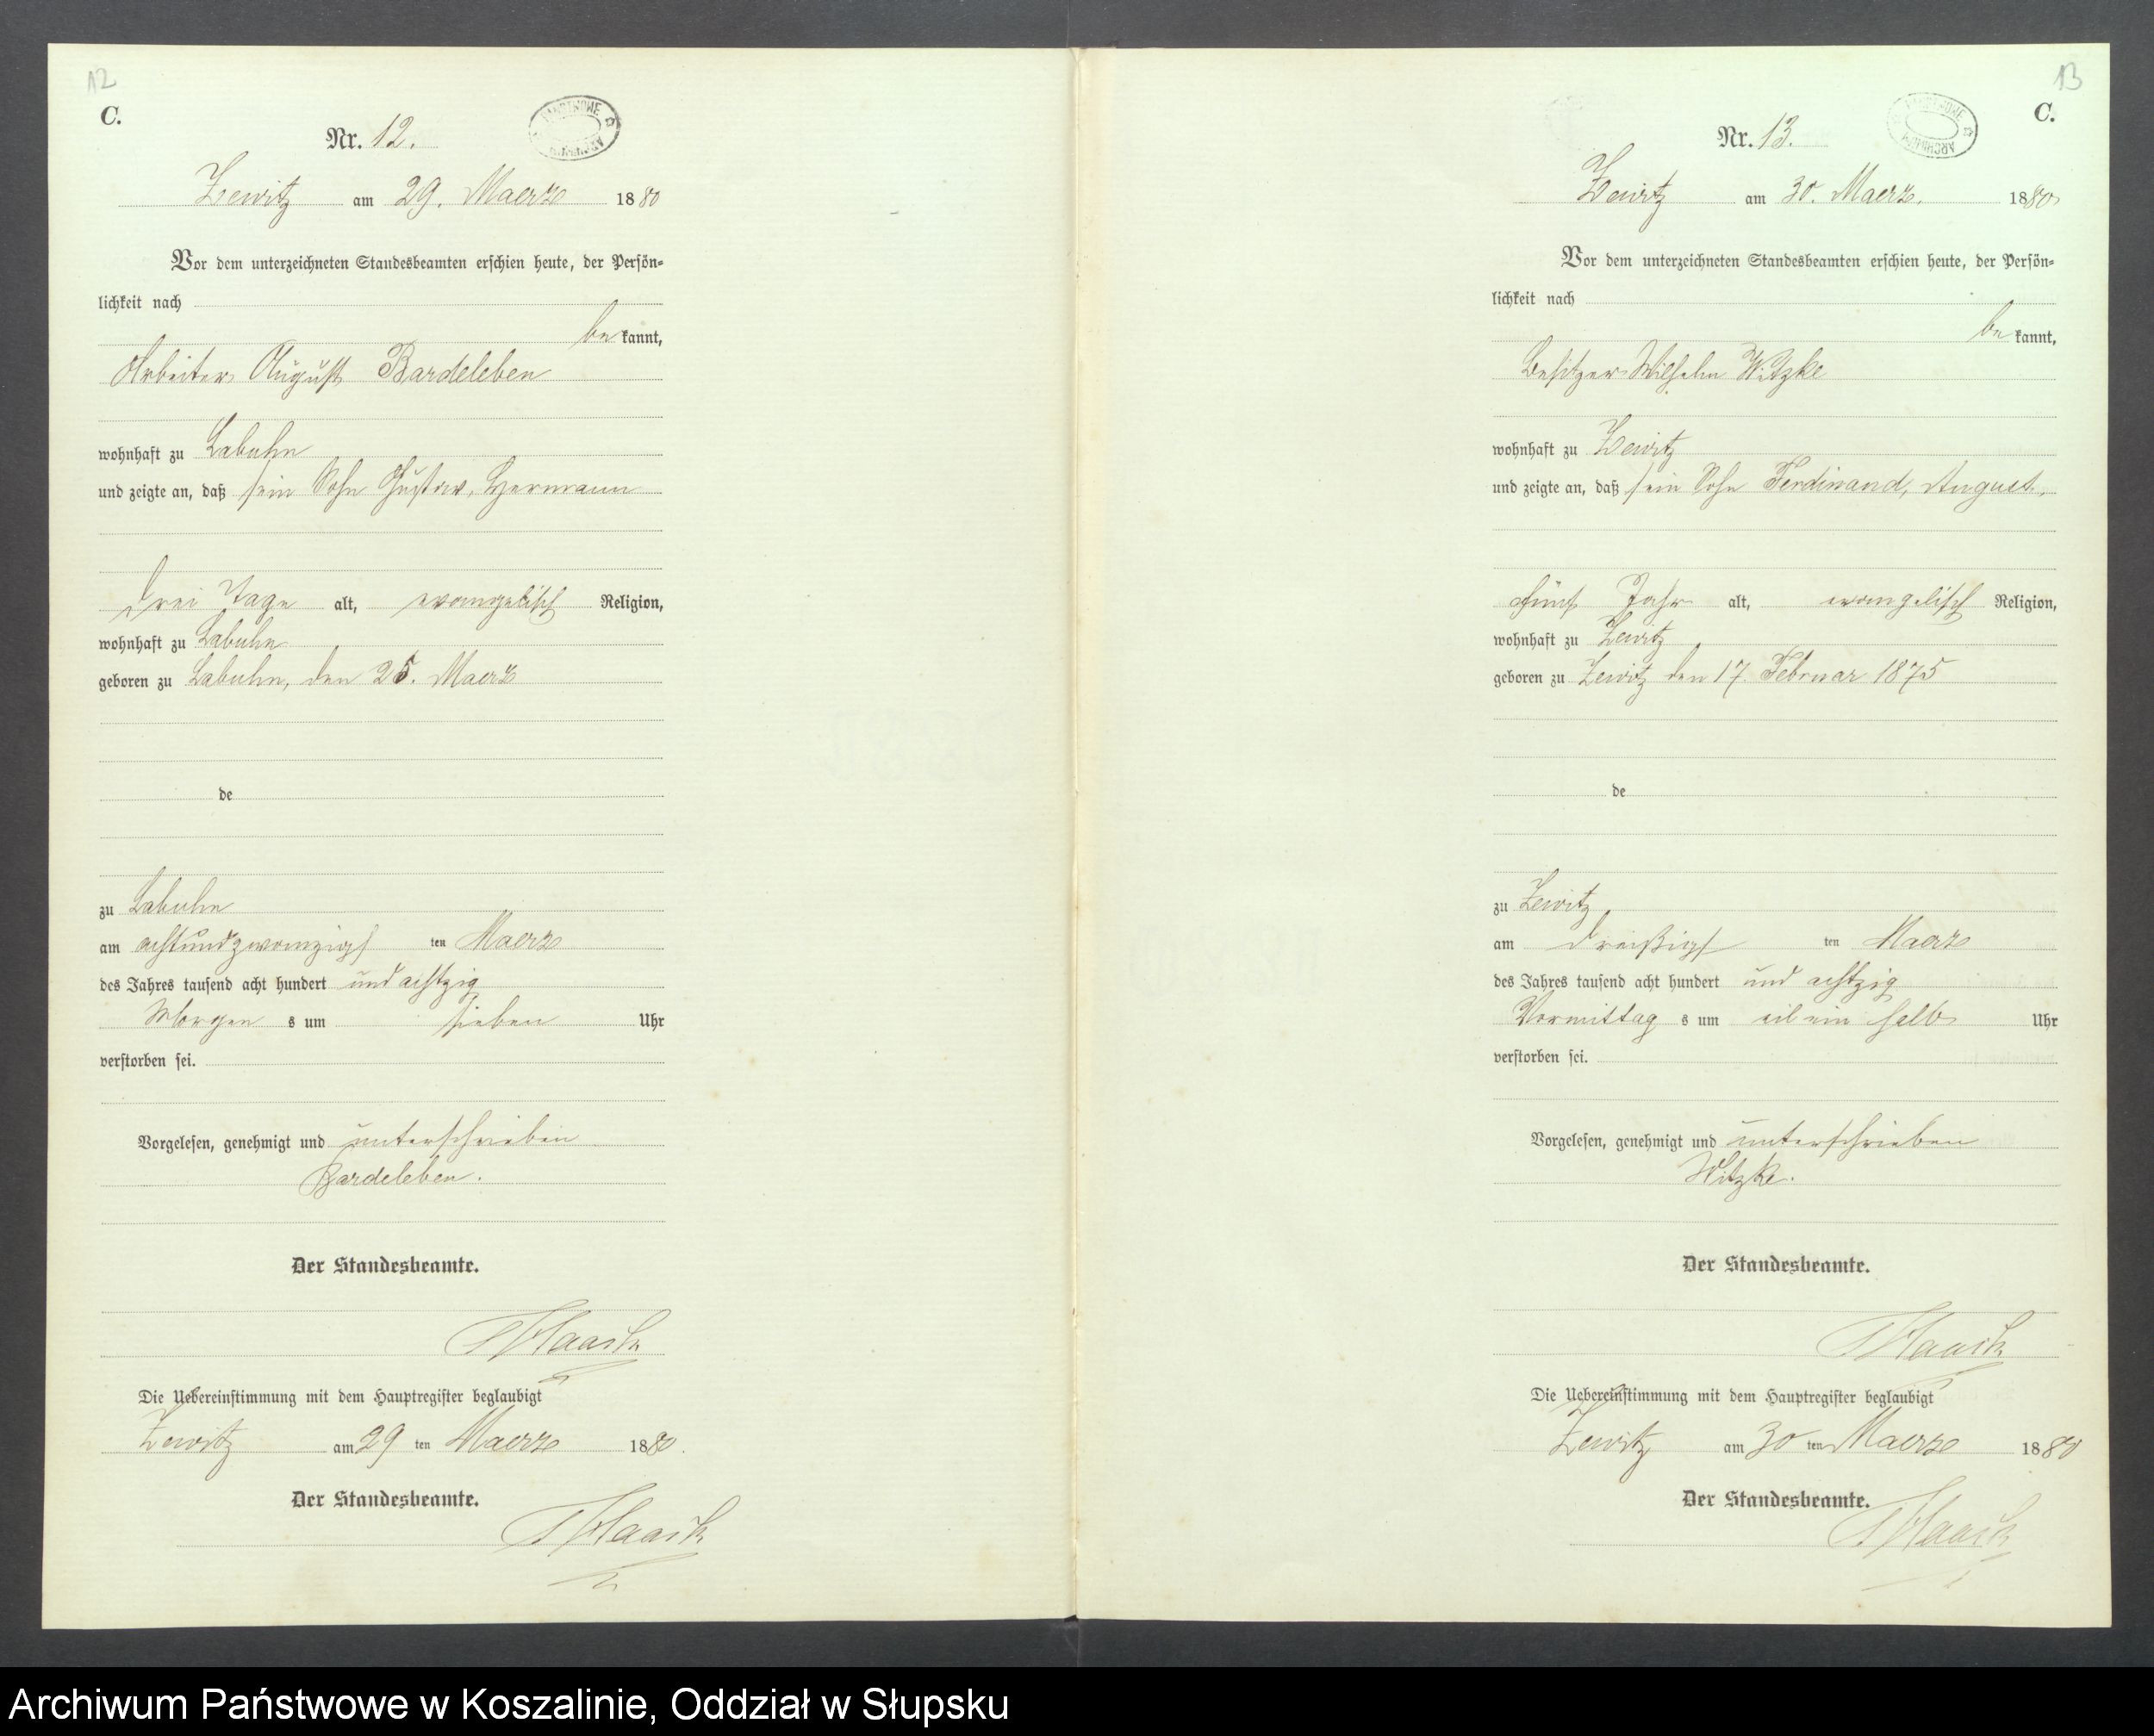 12
C.
Nr. 12.
Zewitz am 29. Maerz 1880
Vor dem unterzeichneten Standesbeamten erschien heute, der Persön-
lichkeit nach
bekannt,
Arbeiter August Bardeleben
wohnhaft zu Labuhn
und zeigte an, daß sein Sohn Gustav, Hermann
drei Tage alt, evangelisch Religion,
wohnhaft zu Labuhn
geboren zu Labuhn, den 25. Maerz
de
zu Labuhn
am achtundzwanzigs ten Maerz
des Jahres tausend acht hundert und achtzig
Morgen s um sieben Uhr
verstorben sei.
Vorgelesen, genehmigt und unterschrieben
Bardeleben.
Der Standesbeamte.
Die Uebereinstimmung mit dem Hauptregister beglaubigt
Zewitz am 29 ten Maerz 1880.
Der Standesbeamte.
13
C.
Nr. 13.
ARCHIWUM
Zewitz am 30. Maerz. 1880
Vor dem unterzeichneten Standesbeamten erschien heute, der Persön-
lichkeit nach
bekannt,
Besitzer Wilhelm Witzke
wohnhaft zu Zewitz
und zeigte an, daß sein Sohn Ferdinand, August,
fünf Jahr alt, evangelisch Religion,
wohnhaft zu Zewitz
geboren zu Zewitz den 17. Februar 1875
de
zu Zewitz
am dreißigs ten Maerz
des Jahres tausend acht hundert und achtzig
Vormittag s um ein halb Uhr
verstorben sei.
Vorgelesen, genehmigt und unterschrieben
Witzke.
Der Standesbeamte.
Die Uebereinstimmung mit dem Hauptregister beglaubigt
Zewitz am 30 ten Maerz 1880
Der Standesbeamte.
Archiwum Państwowe w Koszalinie, Oddział w Słupsku